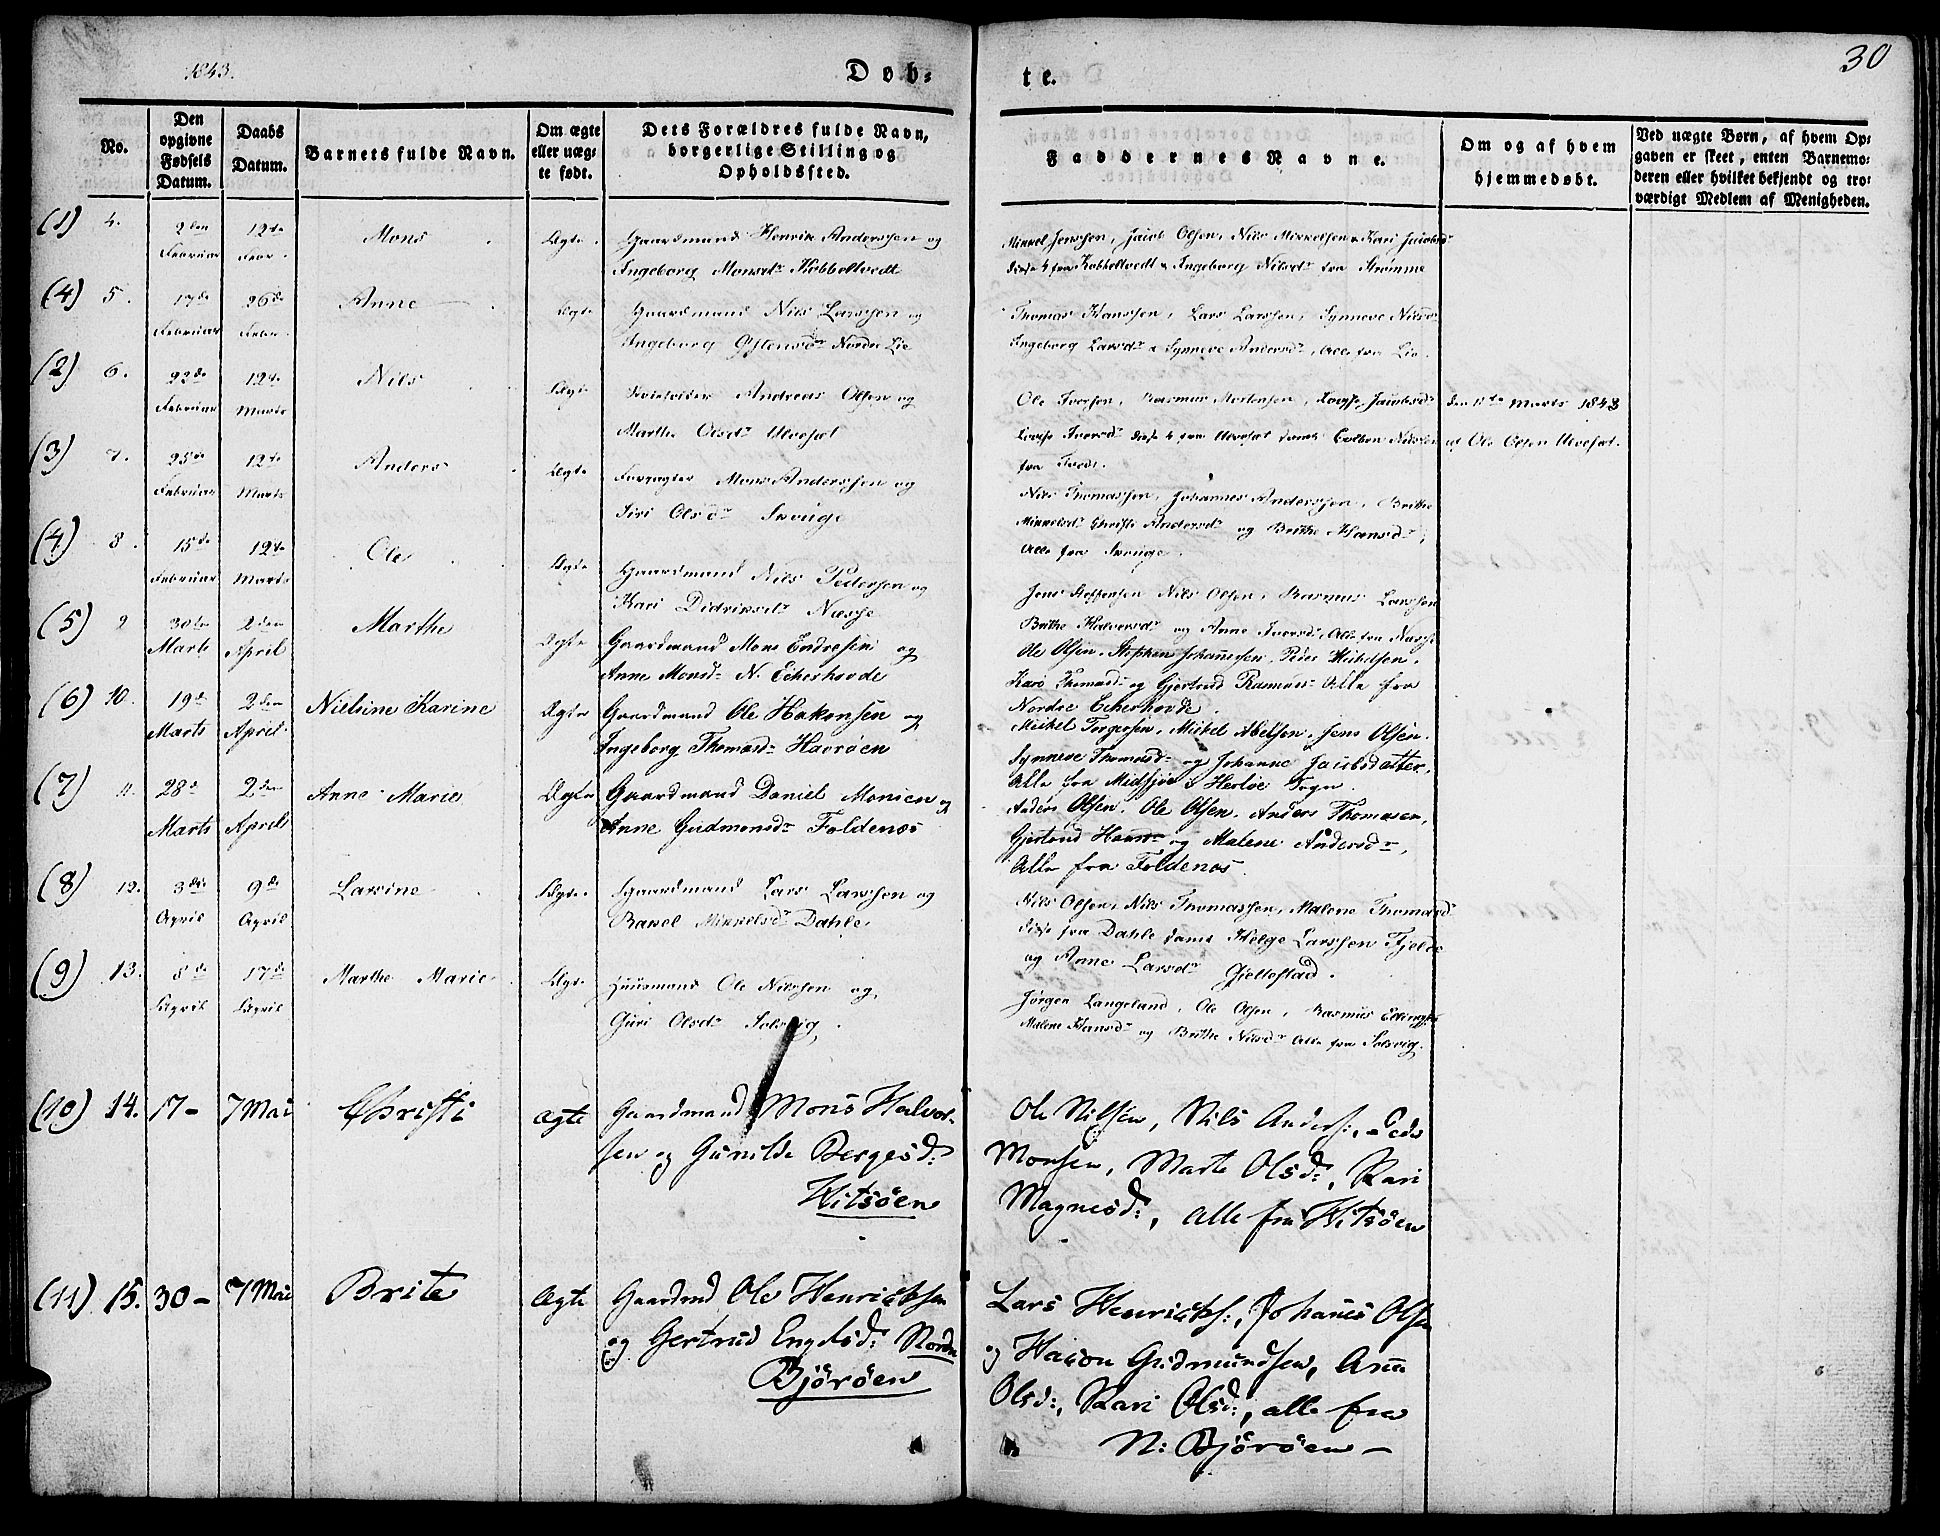 1843.
Døb-
te.
30
No.
Den opgivne Fødsels Datum.
Daabs Datum.
Barnets fulde Navn.
Om ægte eller uæg- te født.
Dets Forældres fulde Navn, borgerlige Stilling og Opholdssted.
Faddernes Navne.
Om og af hvem hjemmedøbt.
Ved uægte Børn, af hvem Op- gaven er skeet, enten Barnemo- deren eller hvilket bekjendt og tro- værdigt Medlem af Menigheden.
(1) 4. 2den Februar 12te Febr. Mons Ægte. Gaardmand Henrik Anderssen og
Ingeborg Monsdr Kobbeltvedt
Mikkel Jenssen, Jacob Olsen, Nils Mikkelsen & Kari Jacobsdr
disse 4 fra Kobbeltvedt & Ingeborg Nilsdr fra Strømme
(4) 5. 17de Februar 26de Febr. Anne Ægte Gaardmand Nils Larssen og
Ingeborg Ostensdr Nordre Lie
Thomas Hanssen, Lars Larssen, Synneve Nilsdr
Ingeborg Larsdr & Synneve Andersdr, Alle fra Lie.
(2) 6. 22de Februar 12te Marts Nils Ægte Andreas Olsen og
Marthe Olsdr Ulvesæt
Ole Iversen, Rasmus Mortensen, Jacobsdr
Iversdr disse 4 fra Ulvesæt samt Nilssen
fra
den 1ste Marts 1843
af Ole Olsen Ulvesæt.
(3) 7. 25de Februar 12te Marts Anders Ægte Forpagter Mons Anderssen og
Siri Olsdr Skouge
Nils Thomassen, Johannes Anderssen, Brithe
Mikkelsdr Christi Andersdr og Brithe Hansdr,
Alle fra Skouge.
(4) 8. 15de Februar 12te Marts Ole Ægte Gaardmand Nils Pedersen og
Kari Didriksdr Næsse
Jens Steffensen Nils Olsen, Rasmus Larssen
Brithe Halversdr og Anne Iversdr, Alle fra Næsse
(5) 9 30te Marts 2den April Marthe Ægte Gaardmand Mons Endresen og
Anne Monsdr N. Eckerhovde
Ole Olsen, Stephen Johannessen, Peder Mikkelsen,
Kari Thomasdr og Gjertrud Rasmusdr Alle fra
Nordre Eckerhovde.
(6) 10. 19de Marts 2den April Nielsine Karine Ægte Gaardmand Ole Hakonsen og
Ingeborg Thomasdr Havrøen
Mickel Torgersen, Mickel Abelsen, Jens Olsen,
Synneve Thomasdr og Johanne Jacobsdatter,
Alle fra Midsjøe i Herløe Sogn.
(7) 11. 28de Marts 2den Aprils Anne Marie Ægte Gaardmand Daniel Monsen og
Anne Gudmonsdr Foldenæs
Anders Olsen, Ole Olsen, Anders Thomasen,
Gjertrud Hansdr og Malene Andersdr,
Alle fra Foldenæs.
(8) 12. 3die April 9de April Larsine Ægte Gaardmand Lars Larssen og
Rakel Mikkelsdr Dahle
Nils Olsen, Nils Thomassen, Malene Thomasdr
disse fra Dahle samt Helge Larssen Fjelde
og Anne Larsdr Gjellestad.
(9) 13. 8de April 17de April Marthe Marie Ægte Huusmand Ole Nilssen og
Guri Olsdr Solsvig.
Jørgen Langeland, Ole Olsen, Rasmus
Malene Hansdr og Brithe Nilsdr Alle fra Solsvig.
(10) 14. 17 – 7 Mai Christi Ægte Gaardmand Mons Halvor-
sen og Gunilde Børgesd:
Hitsöen
Ole Nilsen, Nils Anders:, Peder
Monsen, Marte Olsd:, Kari
Magnesd:, alle fra Hitsöen
(11) 15. 30 – 7 Mai Brite Ægte Gaardmd Ole Henrichsen
og Gertrud Engelsd: Nordre
Björöen
Lars Henrichs:, Johanes Olsen
og Hacon Gudmundsen, Ana
Olsd:, Kari Olsd:, alle fra
N: Björöen –